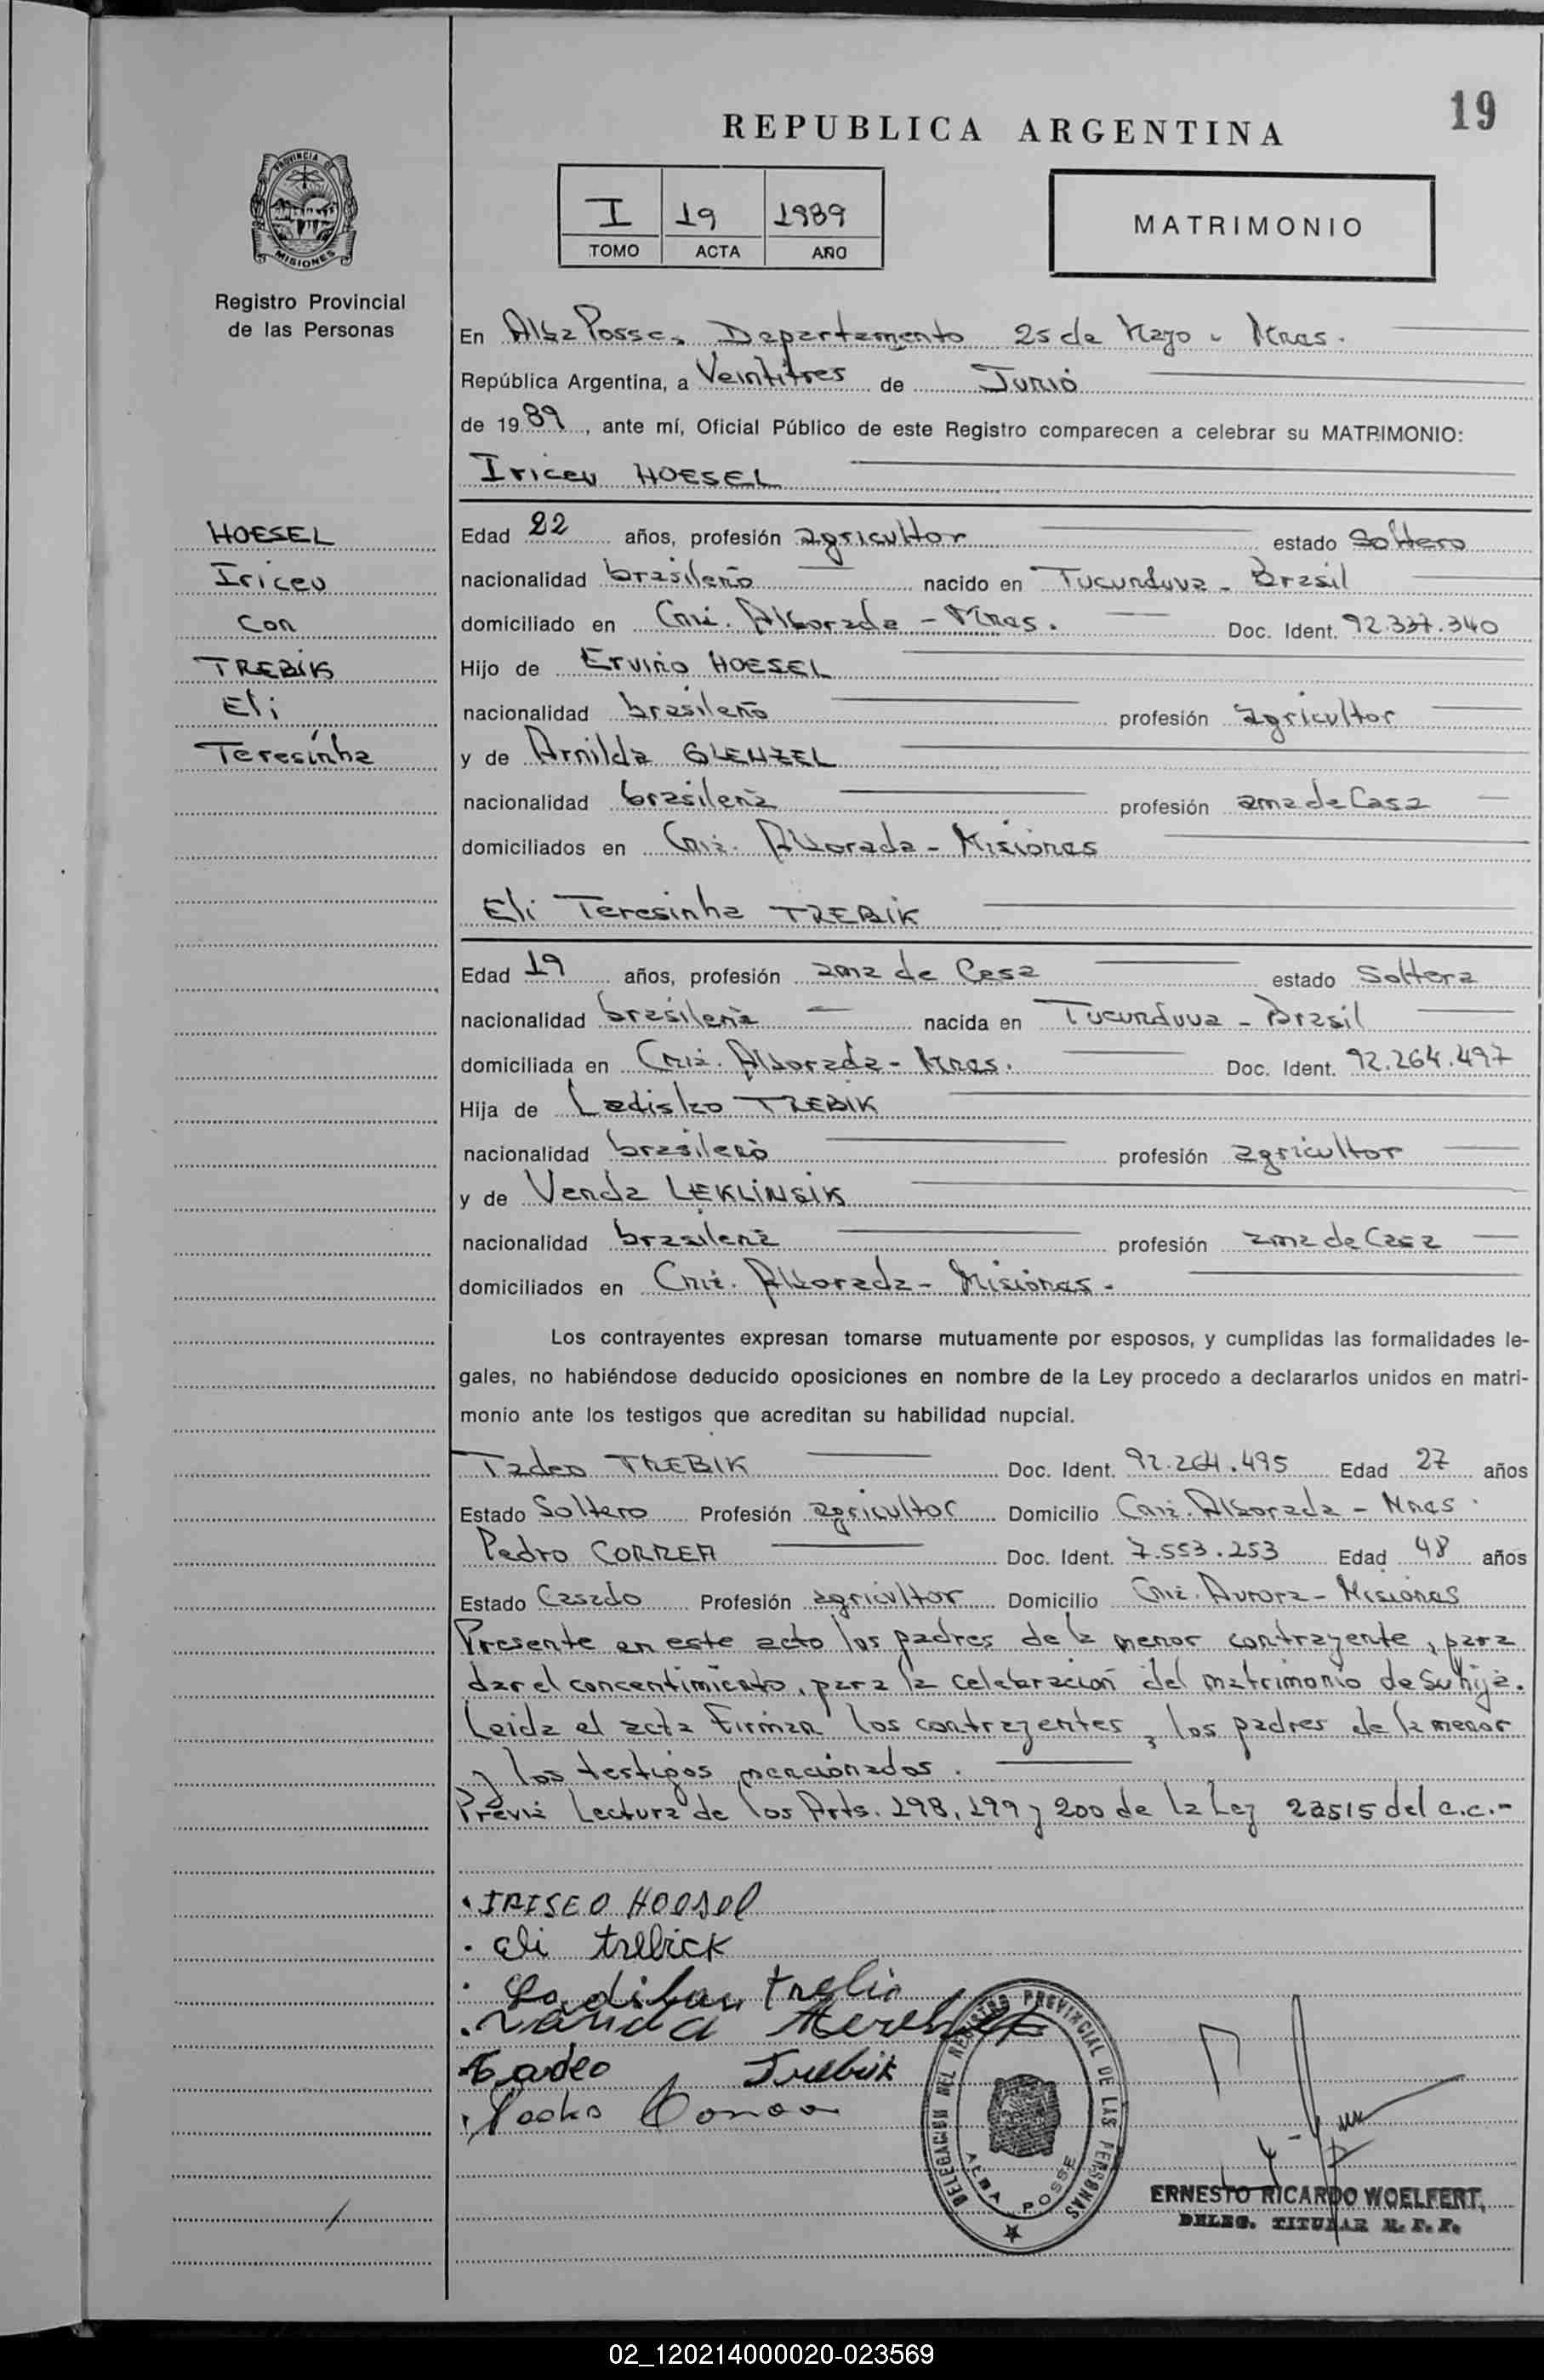 19
REPUBLICA ARGENTINA
I 19 1989
TOMO ACTA AÑO
MATRIMONIO
PROVINCIA DE
MISIONES
Registro Provincial
de las Personas
HOESEL
Iriceu
Con
TREBIK
Eli
Teresinha
En Alba Posse, Departamento 25 de Mayo - Mnes.
República Argentina, a Veintitres de Junio
de 1989, ante mí, Oficial Público de este Registro comparecen a celebrar su MATRIMONIO:
Iriceu HOESEL
Edad 22 años, profesión agricultor estado Soltero
nacionalidad brasileño nacido en Tucunduva - Brasil
domiciliado en Cnia. Alborada - Mnes. Doc. Ident. 92.337.340
Hijo de Ervino HOESEL
nacionalidad brasileño profesión agricultor
y de Arnilda GLENZEL
nacionalidad brasileña profesión ama de Casa
domiciliados en Cnia. Alborada - Misiones
Eli Teresinha TREBIK
Edad 19 años, profesión ama de Casa estado Soltera
nacionalidad brasileña nacida en Tucunduva - Brasil
domiciliada en Cnia. Alborada - Mnes. Doc. Ident. 92.264.497
Hija de Ladislao TREBIK
nacionalidad brasileño profesión agricultor
y de Vanda LEKLINSIK
nacionalidad brasileña profesión ama de Casa
domiciliados en Cnia. Alborada - Misiones.
Los contrayentes expresan tomarse mutuamente por esposos, y cumplidas las formalidades le-
gales, no habiéndose deducido oposiciones en nombre de la Ley procedo a declararlos unidos en matri-
monio ante los testigos que acreditan su habilidad nupcial.
Tadeo TREBIK Doc. Ident. 92.264.495 Edad 27 años
Estado Soltero Profesión agricultor Domicilio Cnia. Alborada - Mnes.
Pedro CORREA Doc. Ident. 7.553.253 Edad 48 años
Estado Casado Profesión agricultor Domicilio Cnia. Aurora - Misiones
Presente en este acto los padres de la menor contrayente, para
dar el concentimiento, para la celebracion del matrimonio de su hija.
Leida el acta Firman los contrayentes, los padres de la menor
y los testigos mencionados.
Previa Lectura de los Arts. 198, 199 y 200 de la Ley 23515 del C.C.-
IRISEO Hoesel
Eli trebick
Vanda
Tadeo Trebik
DELEGACION DEL REGISTRO PROVINCIAL DE LAS PERSONAS
ALBA POSSE
ERNESTO RICARDO WOELFERT,
DELEG. TITULAR R. P. P.
02_120214000020-023569